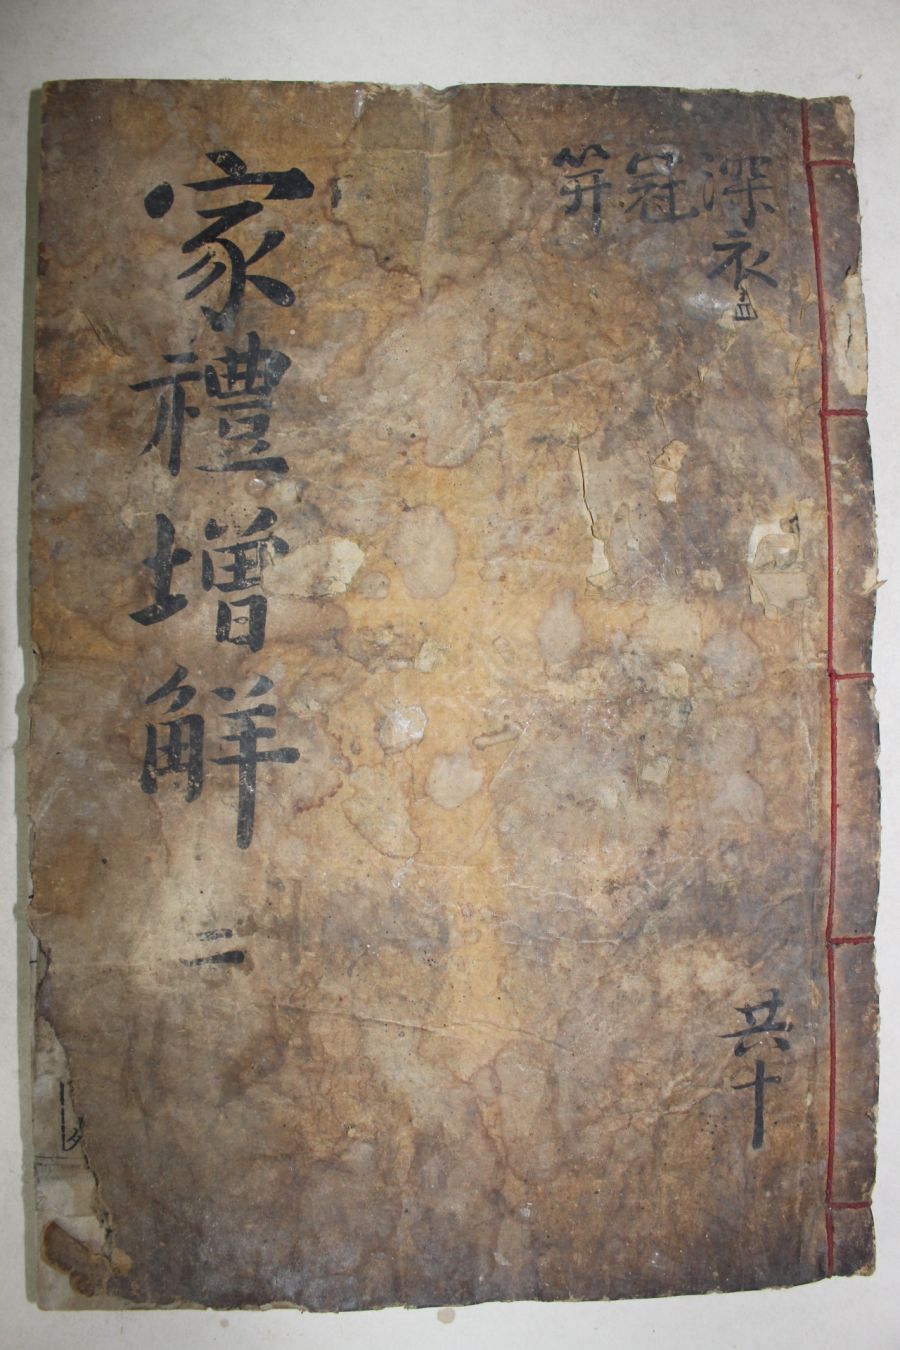 深衣
冠
笄
共十
家禮增解 二